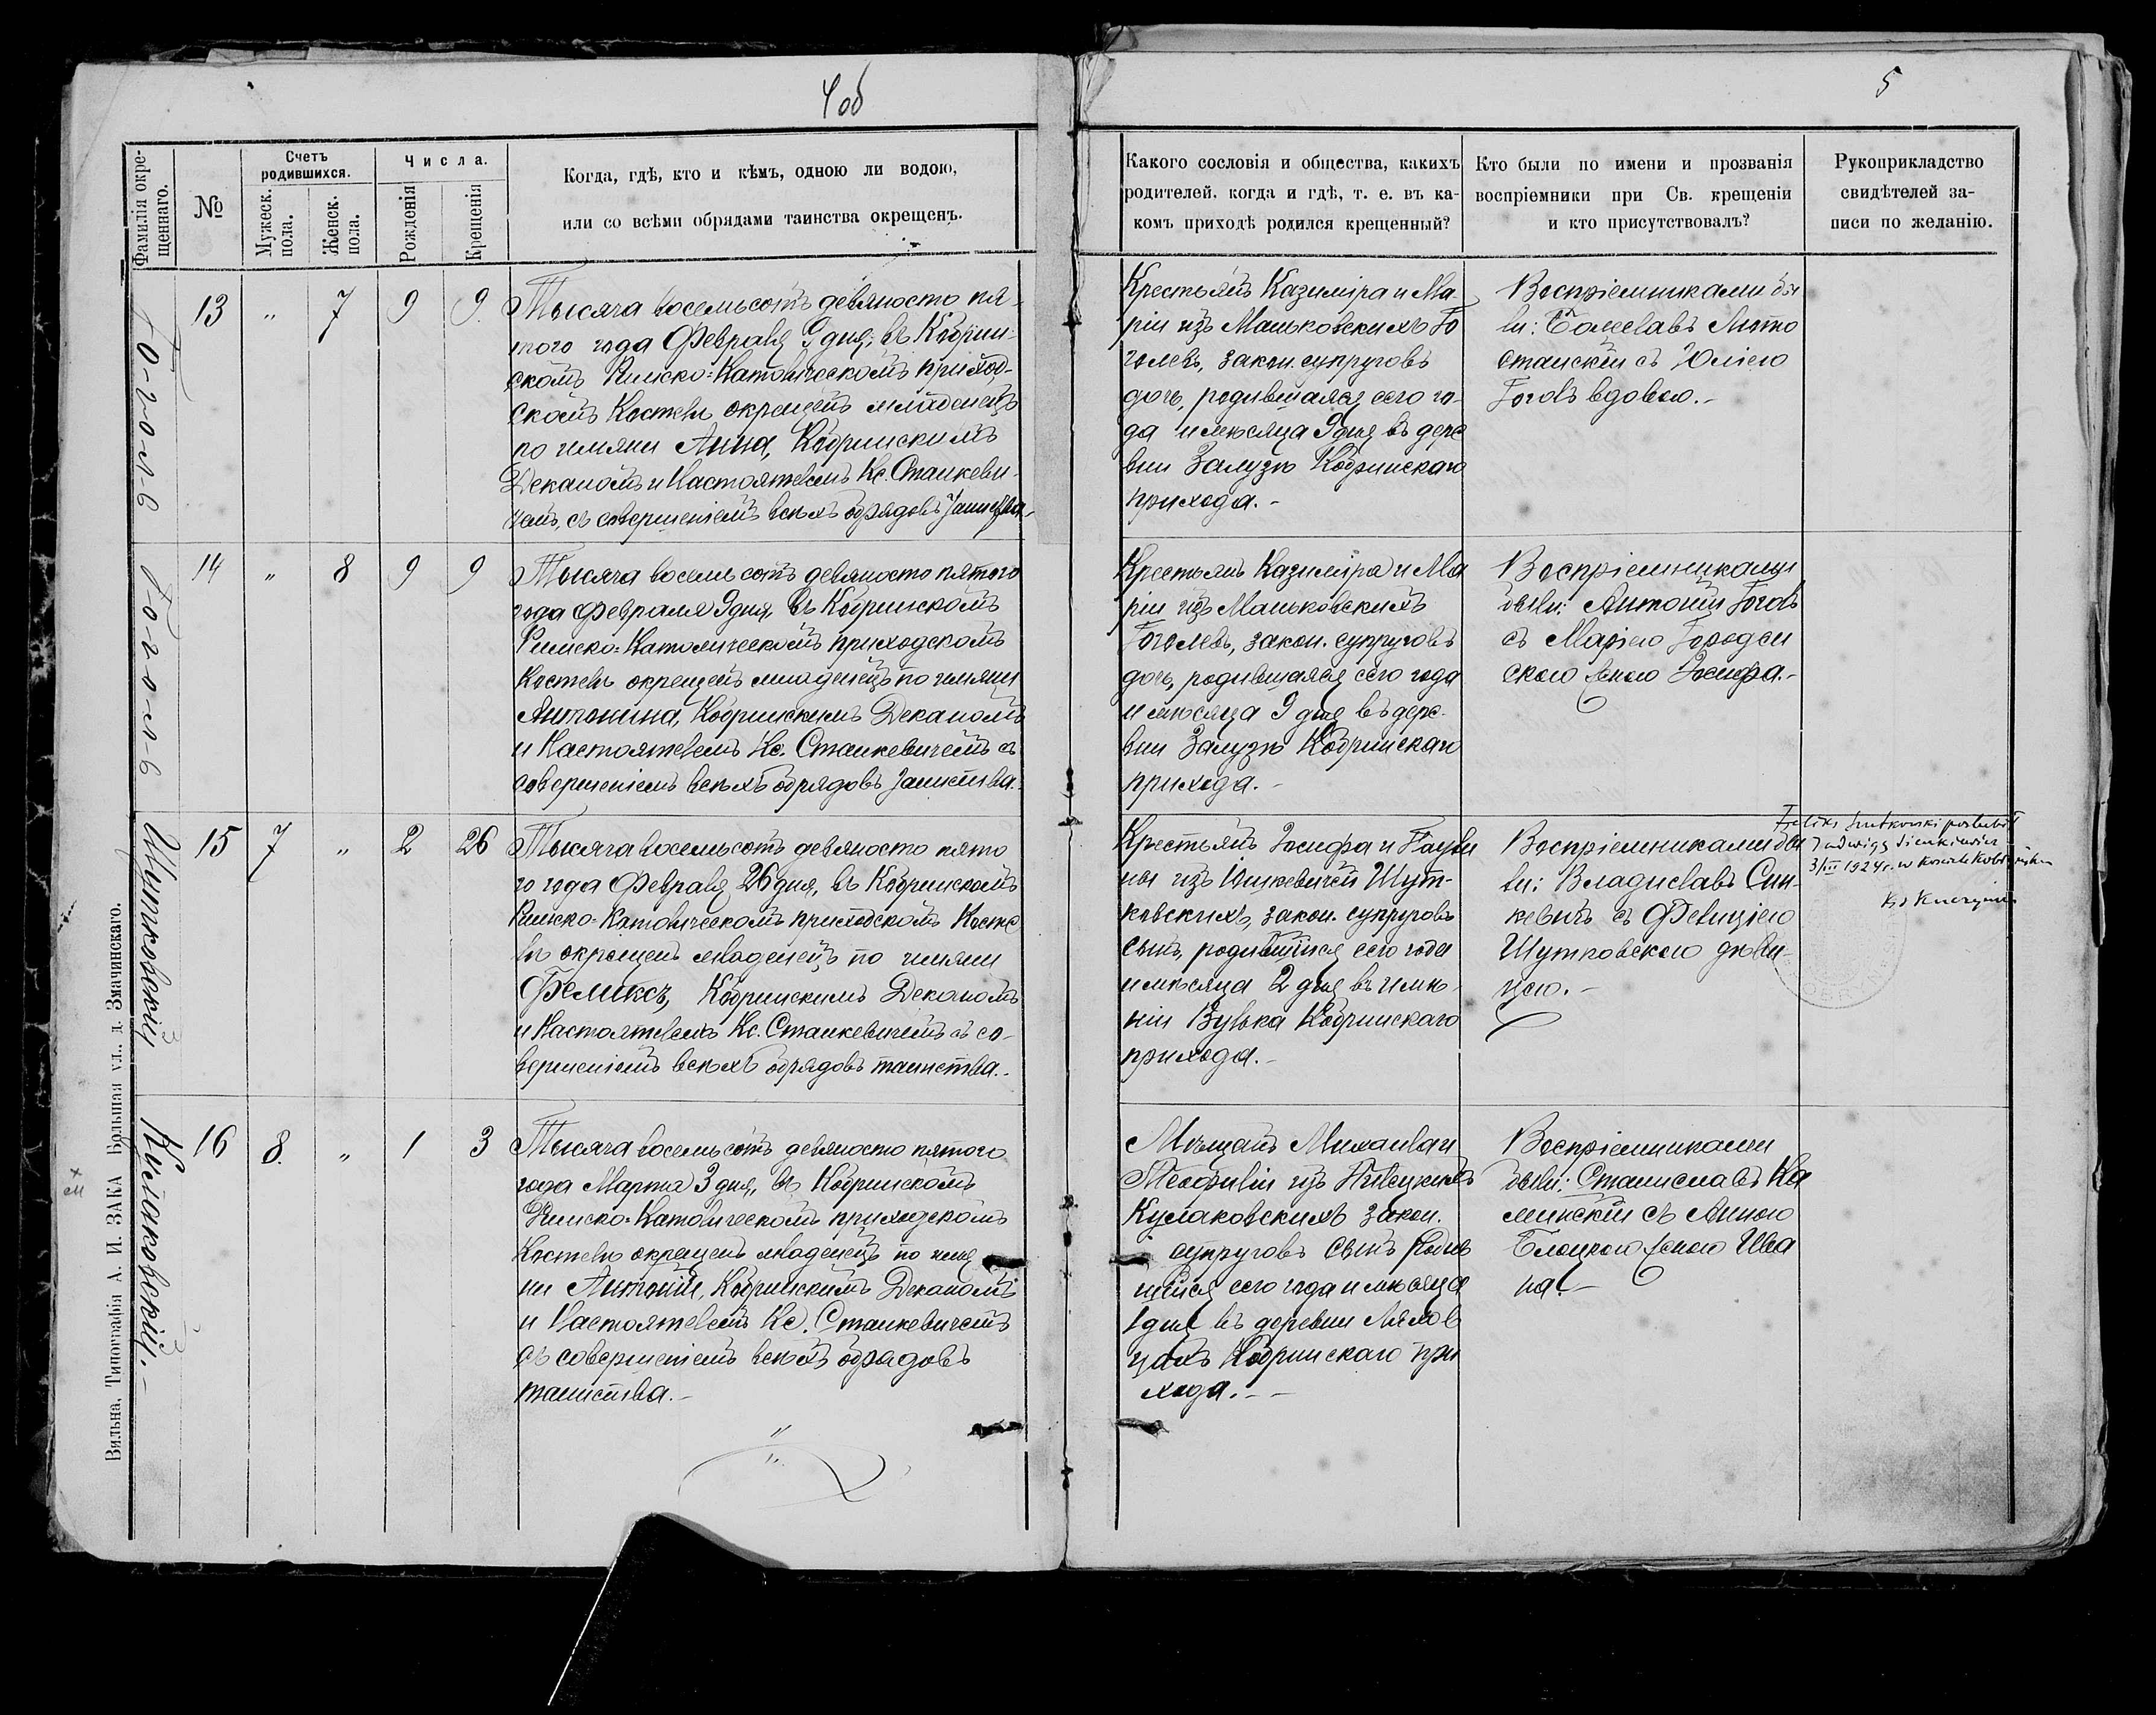 4об
5
Фамилія окрещеннаго.
№
Счетъ родившихся.
Мужеск. пола.
Женск. пола.
Числа.
Рожденія
Крещенія
Когда, гдѣ, кто и кѣмъ, одною ли водою,
или со всѣми обрядами таинства окрещенъ.
Какого сословія и общества, какихъ
родителей, когда и гдѣ, т. е. въ ка-
комъ приходѣ родился крещенный?
Кто были по имени и прозванія
воспріемники при Св. крещеніи
и кто присутствовалъ?
Рукоприкладство
свидѣтелей за-
писи по желанію.
Гоголь
13 " 7 9 9
Тысяча восемьсотъ девяносто пя-
таго года Февраля 9 дня, въ Кобрин-
скомъ Римско-Католическомъ приход-
скомъ Костелѣ окрещенъ младенецъ
по имяни Анна, Кобринскимъ
Деканомъ и Настоятелемъ Кс. Станкеви-
чемъ, съ совершеніемъ всѣхъ обрядовъ таинства.
Крестьянъ Казиміра и Ма-
ріи изъ Маньковскихъ Го
голевъ, закон. супруговъ
дочь, родившаяся сего го-
да и мѣсяца 9 дня въ дере
вни Залузю Кобринскаго
прихода.-
Воспріемниками бы
ли: Болеславъ Лито
станскій съ Юліею
Гоголь вдовою.-
Гоголь
14 " 8 9 9
Тысяча восемьсотъ девяносто пятого
года Февраля 9 дня, въ Кобринскомъ
Римско-Католическомъ приходскомъ
Костелѣ окрещенъ младенецъ по имяни
Антонина, Кобринскимъ Деканомъ
и Настоятелемъ Кс. Станкевичемъ съ
совершеніемъ всѣхъ обрядовъ таинства.
Крестьянъ Казиміра и Ма
ріи изъ Маньковскихъ
Гоголевъ, закон. супруговъ
дочь, родившаяся сего года
и мѣсяца 9 дня въ дере-
вни Залузю Кобринскаго
прихода.-
Воспріемниками
были: Антоній Гоголь
съ Маріею
скою женою Іосифа.-
Шутковскій
15 7 " 2 26
Тысяча восемьсотъ девяносто пято
го года Февраля 26 дня, въ Кобринскомъ
Римско-Католическомъ приходскомъ Косте
лѣ окрещенъ младенецъ по имяни
Феликсъ, Кобринскимъ Деканомъ
и Настоятелемъ Кс. Станкевичемъ съ со-
вершеніемъ всѣхъ обрядовъ таинства.-
Крестьянъ Іосифа и Паули
ны изъ Шут-
ковскихъ, закон. супруговъ
сынъ, родившійся сего года
и мѣсяца 2 дня въ имѣ-
ніи Вулька Кобринскаго
прихода.-
Воспріемниками бы
ли: Владиславъ Син-
кевичъ съ Фелиціею
Шутковскою дѣви-
цею.-
Feliks Szutkowski poślubił
Jadwigę Sienkiewicz
3/III 1924 r. w kościele Kobryńskim
Ks
Кулаковскій.-
16 8. " 1 3
Тысяча восемьсотъ девяносто пятого
года Марта 3 дня, въ Кобринскомъ
Римско-Католическомъ приходскомъ
Костелѣ окрещенъ младенецъ по имя
ни Антоній, Кобринскимъ Деканомъ
и Настоятелемъ Кс. Станкевичемъ
съ совершеніемъ всѣхъ обрядовъ
таинства.-
Мѣщанъ Михаила и
Теофиліи изъ
Кулаковскихъ закон.
супруговъ сынъ родив
шійся сего года и мѣсяца
1 дня въ деревни Ляхов
цахъ Кобринскаго при
хода.--
Воспріемниками
были: Станиславъ Ка
минскій съ Анною
Блоцкою женою Ива
на.-
Вильна, Типографія А. И. ЗАКА Большая ул., д. Змачинскаго.